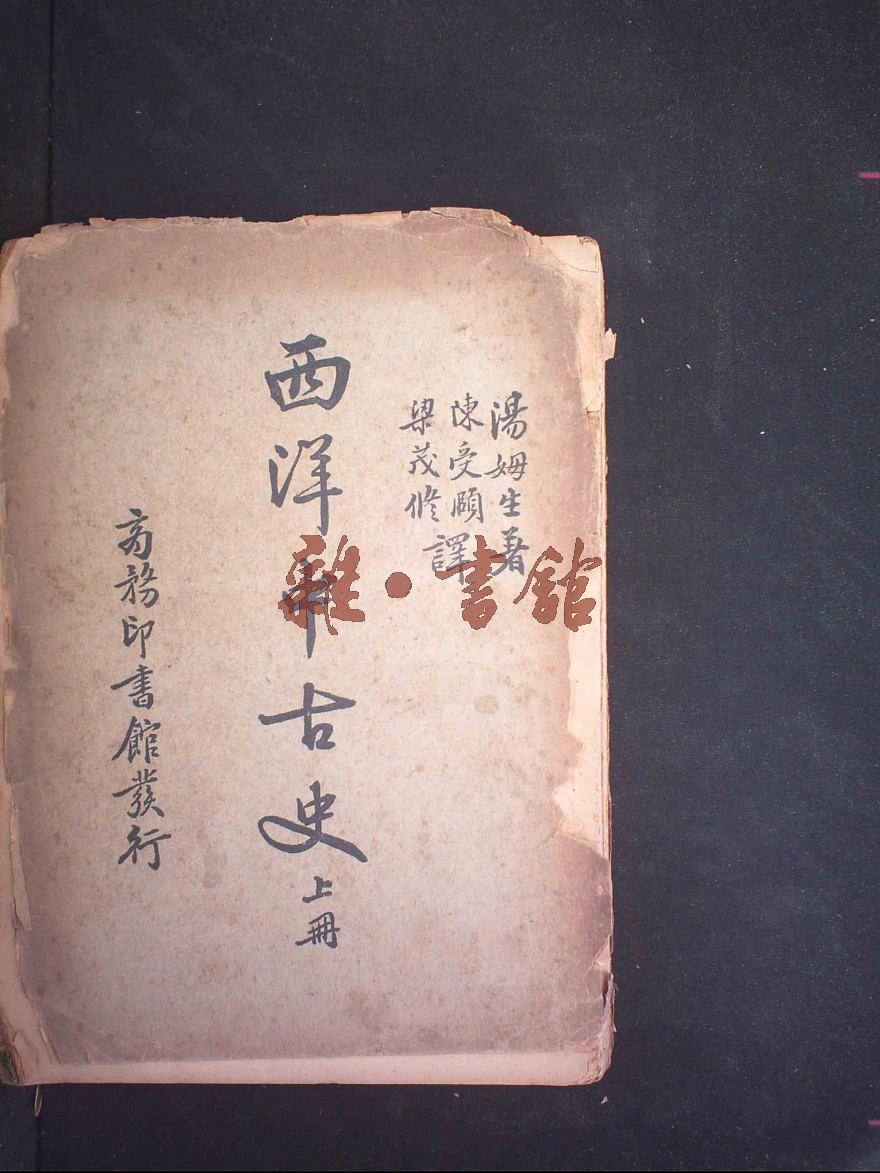 湯姆生著
陳受頤
梁茂修
譯
西洋中古史
上冊
商務印書館發行
雜·書館